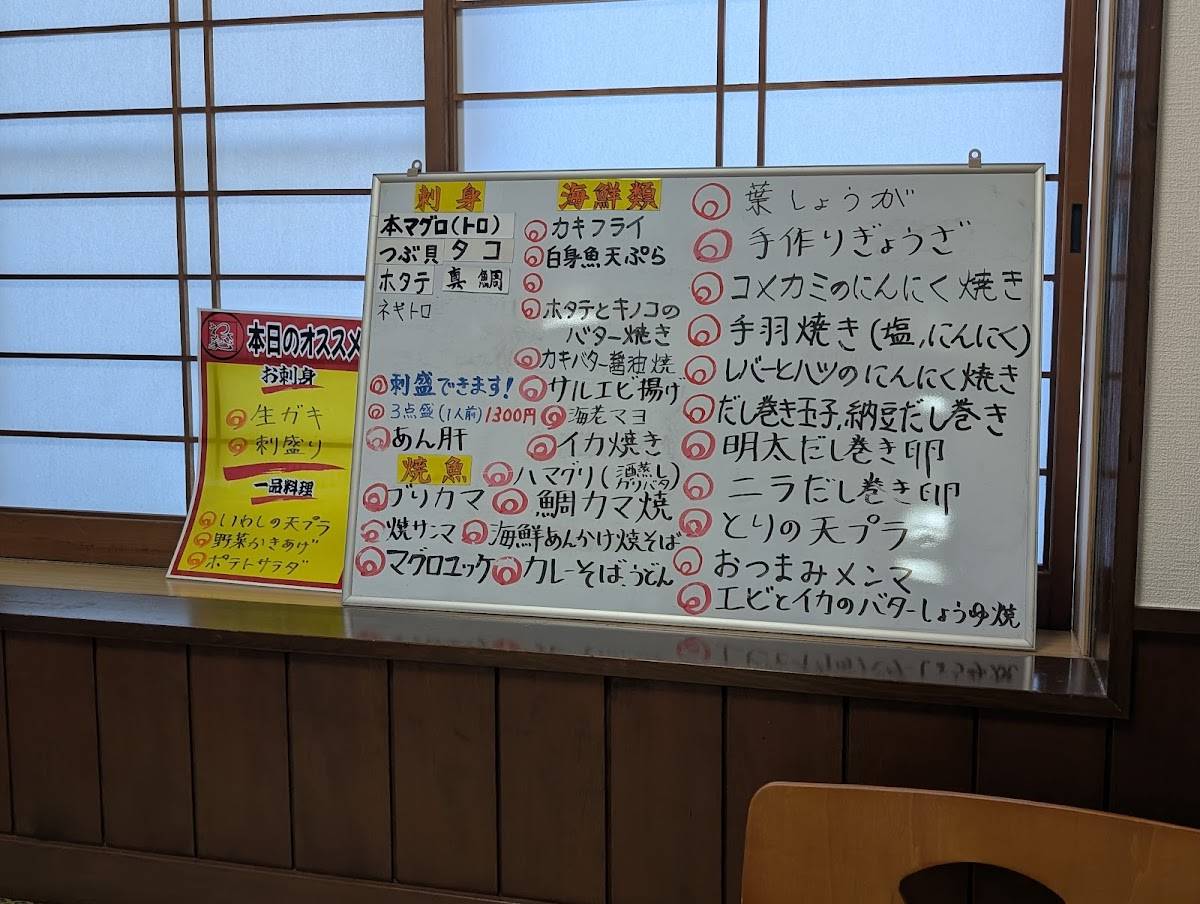 本日のオススメ
お刺身
生ガキ
刺盛り
一品料理
いわしの天プラ
野菜かきあげ
ポテトサラダ
刺身
本マグロ(トロ)
つぶ貝 タコ
ホタテ 真鯛
ネギトロ
刺盛できます!
3点盛(1人前)1300円
あん肝
焼魚
ブリカマ
焼サンマ
マグロユッケ
海鮮類
カキフライ
白身魚天ぷら
ホタテとキノコの
バター焼き
カキバター醤油焼
サルエビ揚げ
海老マヨ
イカ焼き
ハマグリ(酒蒸し
ガリバタ)
鯛カマ焼
海鮮あんかけ焼そば
カレーそば、うどん
葉しょうが
手作りぎょうざ
コメカミのにんにく焼き
手羽焼き(塩,にんにく)
レバーとハツのにんにく焼き
だし巻き玉子,納豆だし巻き
明太だし巻き卵
ニラだし巻き卵
とりの天プラ
おつまみメンマ
エビとイカのバターしょうゆ焼